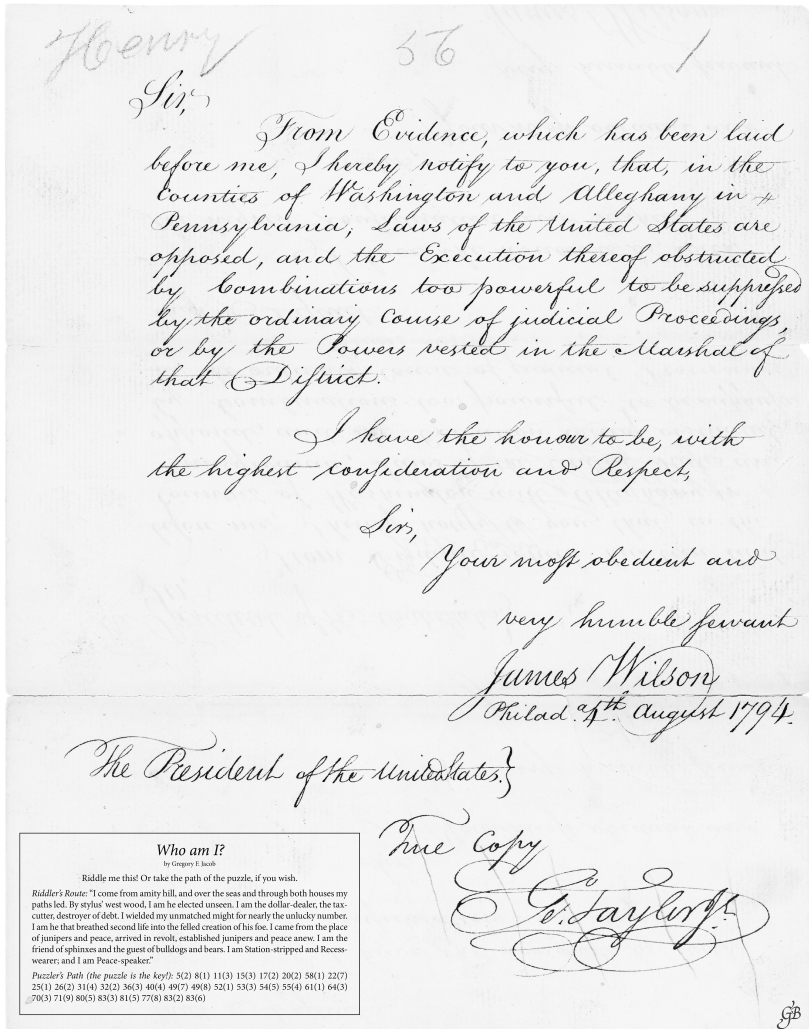 Henry 56 1
Sir,
From Evidence, which has been laid
before me, I hereby notify to you, that, in the
Counties of Washington and Alleghany in
Pennsylvania, Laws of the United States are
opposed, and the Execution thereof obstructed
by Combinations too powerful to be suppressed
by the ordinary Course of judicial Proceedings,
or by the Powers vested in the Marshal of
that District.
I have the honour to be, with
the highest consideration and Respect,
Sir,
Your most obedient and
very humble servant
James Wilson
Philada. 4th. August 1794.
The President of the United States.}
True Copy
Geo: Taylor Jr.
Who am I?
by Gregory F. Jacob
Riddle me this! Or take the path of the puzzle, if you wish.
Riddler's Route: "I come from amity hill, and over the seas and through both houses my
paths led. By stylus' west wood, I am he elected unseen. I am the dollar-dealer, the tax-
cutter, destroyer of debt. I wielded my unmatched might for nearly the unlucky number.
I am he that breathed second life into the felled creation of his foe. I came from the place
of junipers and peace, arrived in revolt, established junipers and peace anew. I am the
friend of sphinxes and the guest of bulldogs and bears. I am Station-stripped and Recess-
wearer; and I am Peace-speaker."
Puzzler's Path (the puzzle is the key!): 5(2) 8(1) 11(3) 15(3) 17(2) 20(2) 58(1) 22(7)
25(1) 26(2) 31(4) 32(2) 36(3) 40(4) 49(7) 49(8) 52(1) 53(3) 54(5) 55(4) 61(1) 64(3)
70(3) 71(9) 80(5) 83(3) 81(5) 77(8) 83(2) 83(6)